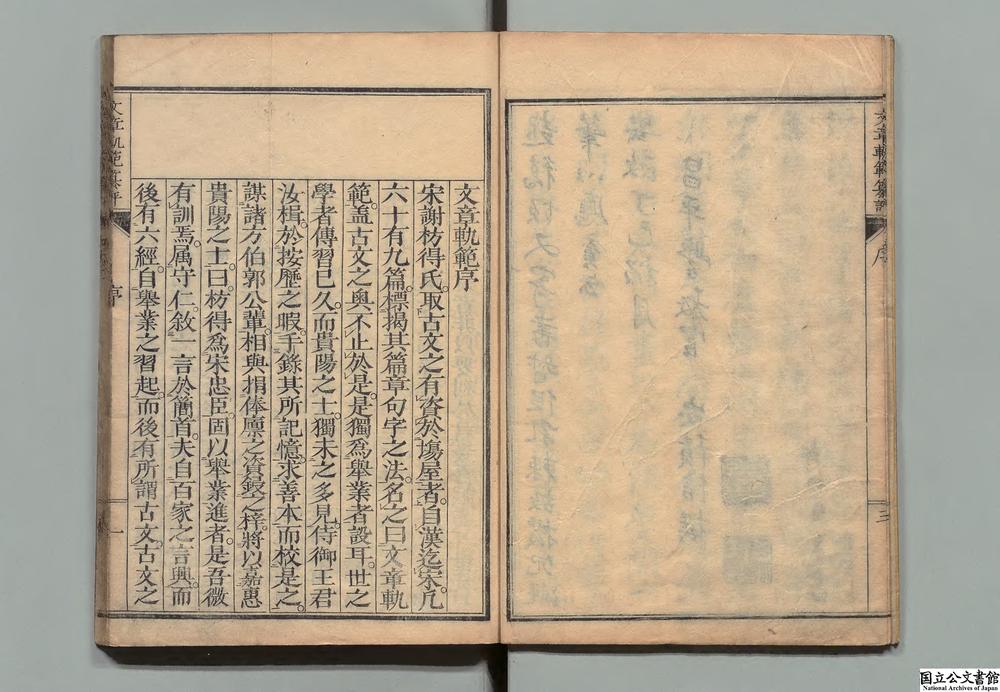 文章軌範纂評
序
三
文章軌範序
宋謝枋得氏。取古文之有資於場屋者。自漢迄宋。凡
六十有九篇。標揭其篇章句字之法。名之曰文章軌
範。蓋古文之奧。不止於是。是獨爲舉業者設耳。世之
學者傳習已久。而貴陽之士。獨未之多見。侍御王君
汝楫。於按歷之暇。手錄其所記憶。求善本而校是之。
謀諸方伯郭公輩。相與捐俸廩之資。鋟之梓。將以嘉惠
貴陽之士。曰。枋得爲宋忠臣。固以舉業進者。是吾微
有訓焉。属守仁。敘一言於簡首。夫自百家之言興。而
後有六經。自舉業之習起。而後有所謂古文。古文之
文章軌範纂評
序
一
国立公文書館
National Archives of Japan